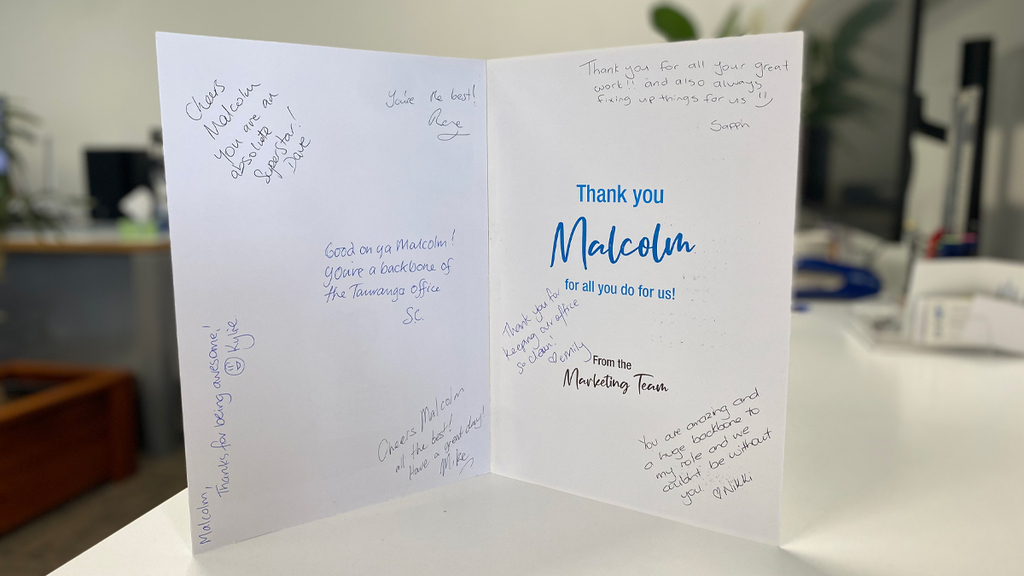 Cheers
Malcolm
you are an
absolute
Superstar!
Dave
You're the best!
Rene
Good on ya Malcolm!
you're a backbone of
the Tauranga office
S.C.
Malcolm,
Thanks for being awesome!
Kylie
Cheers Malcolm
all the best!
Have a great day!
Mike
Thank you for all your great
work!! and also always
fixing up things for us
Sapph
Thank you
Malcolm
for all you do for us!
Thank you for
keeping our office
so clean!
emily
From the
Marketing Team
You are amazing and
a huge backbone to
my role and we
couldnt be without
you
Nikki